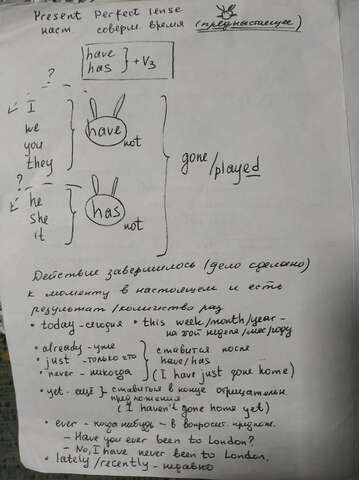 Present Perfect Tense
наст соверш. время (преднастоящее)
have
has } + V3
?
I
we
you
they
have
not
gone/played
?
he
she
it
has
not
Действие завершилось (дело сделано)
к моменту в настоящем и есть
результат/количество раз
• today - сегодня • this week/month/year -
на этой неделе/мес/году
• already - уже
• just - только что
• never - никогда
ставится после
have/has
(I have just gone home)
• yet - ещё } ставиться в конце отрицательн
предложения
(I haven't gone home yet)
• ever - когда нибудь - в вопросит. предлож.
- Have you ever been to London?
- No, I have never been to London.
• lately/recently - недавно